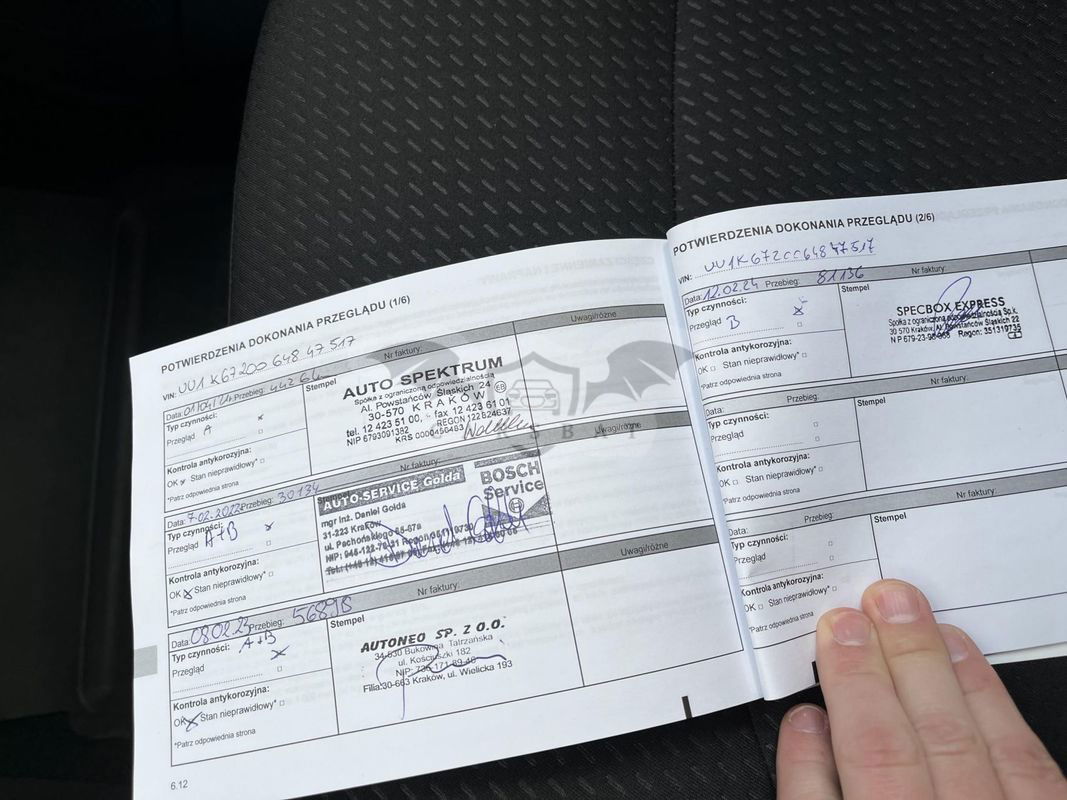 POTWIERDZENIA DOKONANIA PRZEGLĄDU (1/6)
VIN: UU1K67200 648 47 517
Data: Przebieg: Nr faktury:
Typ czynności: Stempel Uwagi/różne
Przegląd A
Kontrola antykorozyjna:
OK Stan nieprawidłowy*
*Patrz odpowiednia strona
AUTO SPEKTRUM
Spółka z ograniczoną odpowiedzialnością
Al. Powstańców Śląskich 24
30-570 KRAKÓW
tel. 12 423 51 00, fax 12 423 61 01
NIP 6793091382 REGON 122824637
KRS 0000450483
CARSBAT
Data: 7.02.2022 Przebieg: 30134 Nr faktury:
Typ czynności: Stempel Uwagi/różne
Przegląd A+B
Kontrola antykorozyjna:
OK Stan nieprawidłowy*
*Patrz odpowiednia strona
AUTO-SERVICE Gołda
mgr inż. Daniel Gołda
31-223 Kraków
ul. Pachońskiego
BOSCH
Service
Data: 08.02.23 Przebieg: 56898 Nr faktury:
Typ czynności: A+B Stempel Uwagi/różne
Przegląd
Kontrola antykorozyjna:
OK Stan nieprawidłowy*
*Patrz odpowiednia strona
AUTONEO SP. Z O.O.
34-530 Bukowina Tatrzańska
ul. Kościuszki 182
Filia:30-663 Kraków, ul. Wielicka 193
6.12
POTWIERDZENIA DOKONANIA PRZEGLĄDU (2/6)
VIN: UU1K6720064847517
Data: 12.02.24 Przebieg: 81136 Nr faktury:
Typ czynności: Stempel
Przegląd B
Kontrola antykorozyjna:
OK Stan nieprawidłowy*
*Patrz odpowiednia strona
SPECBOX EXPRESS
Spółka z ograniczoną odpowiedzialnością Sp.k.
30-570 Kraków, Al. Powstańców Śląskich 22
Regon: 351319735
Data: Przebieg: Nr faktury:
Typ czynności: Stempel
Przegląd
Kontrola antykorozyjna:
OK Stan nieprawidłowy*
*Patrz odpowiednia strona
Data: Przebieg: Nr faktury:
Typ czynności: Stempel
Przegląd
Kontrola antykorozyjna:
OK Stan nieprawidłowy*
*Patrz odpowiednia strona